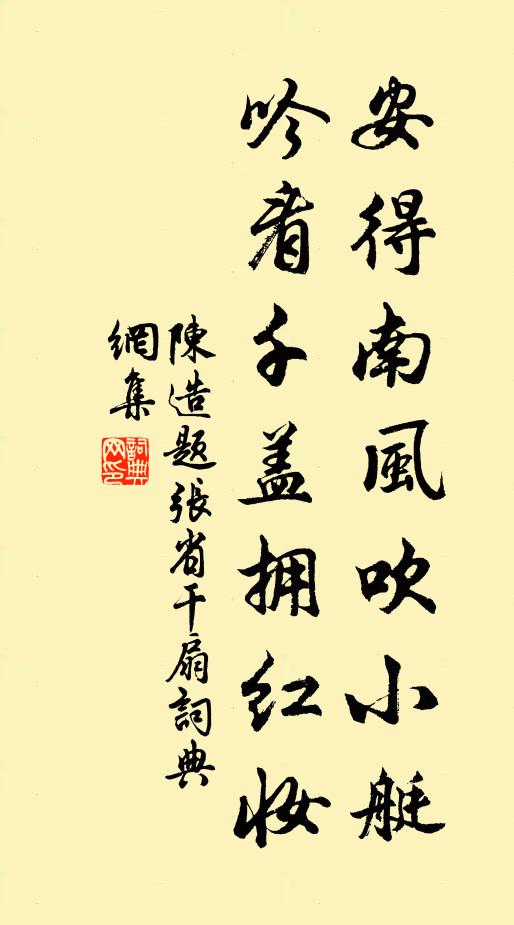 安得南風吹小艇
吟看千盖拥红妆
陳造題張省干扇詞典
網集
詞典網印